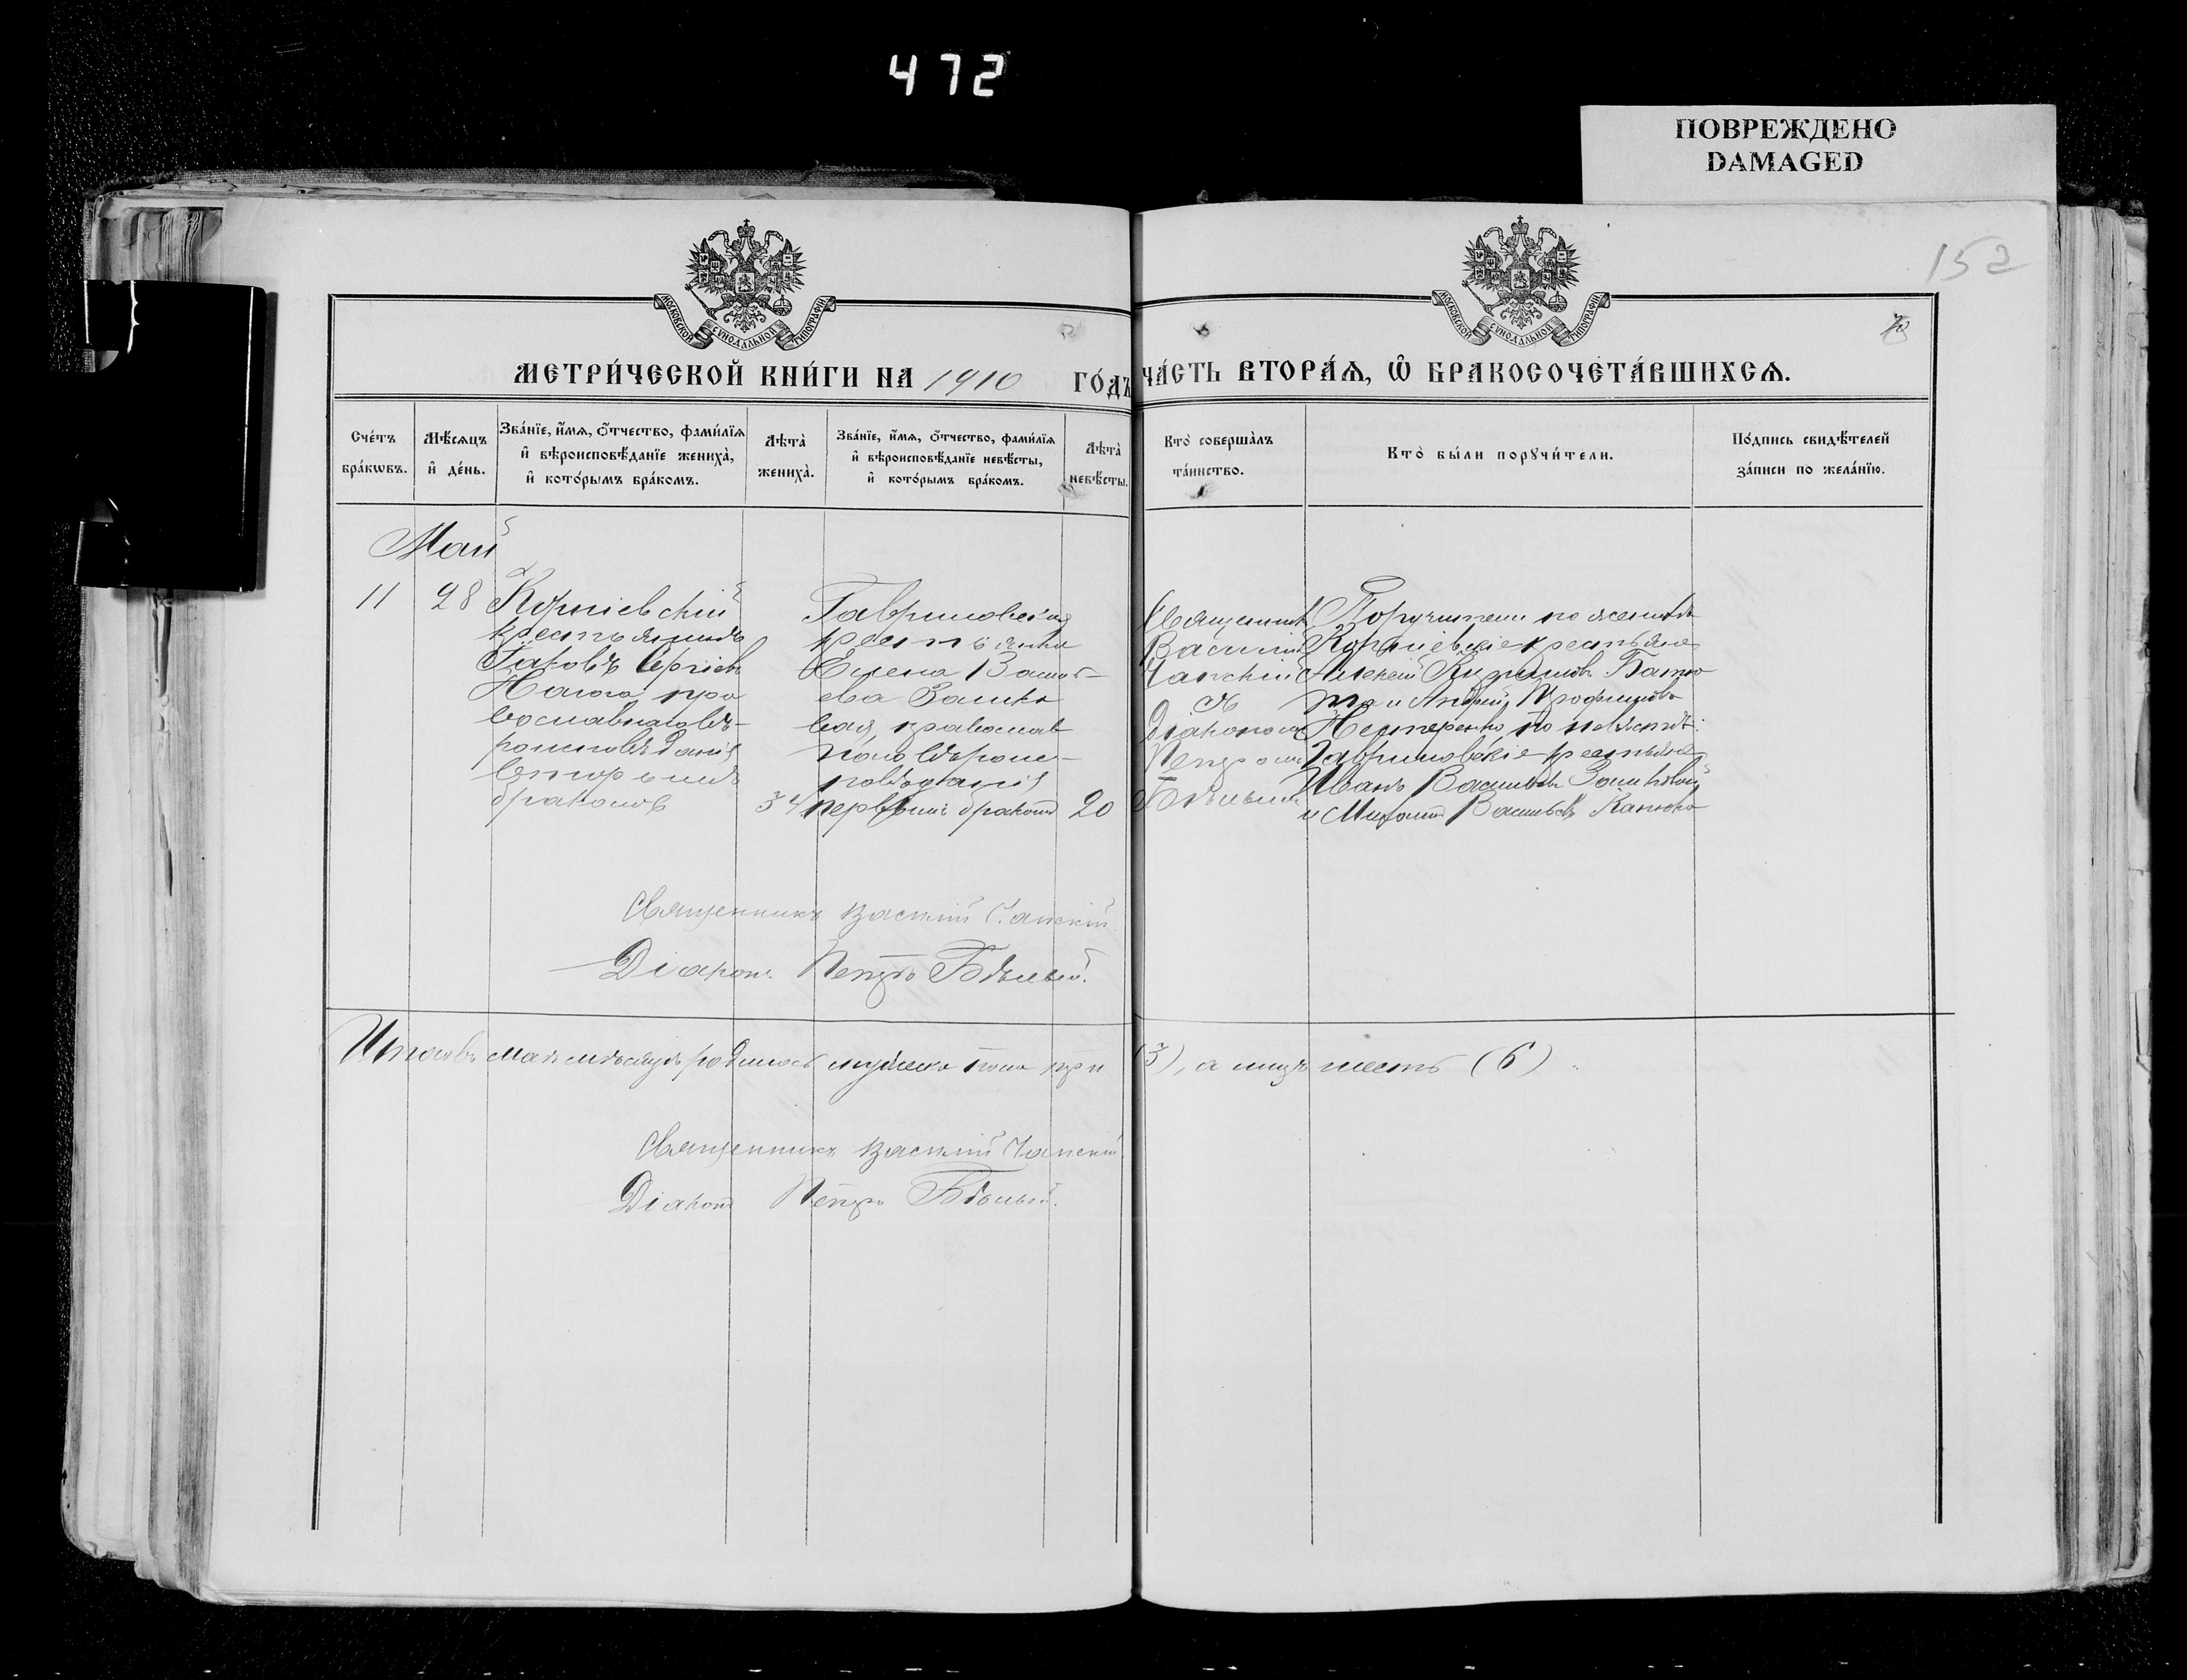 472
ПОВРЕЖДЕНО
DAMAGED
152
МОСКОВСКОЙ СѴНОДАЛЬНОЙ ТИПОГРАФІИ
МОСКОВСКОЙ СѴНОДАЛЬНОЙ ТИПОГРАФІИ
МЕТРИ́ЧЕСКОЙ КНИ́ГИ НА 1910 ГО́ДЪ
ЧА́СТЬ ВТОРА́Ѧ, Ѡ҆ БРАКОСОЧЕТА́ВШИХСѦ.
Сче́тъ
бра́кѡвъ.
Мѣ́сѧцъ
и҆ де́нь.
Зва́нїе, и҆́мѧ, ѻ҆́тчество, фами́лїѧ
и҆ вѣроисповѣ́данїе жениха̀,
и҆ кото́рымъ бра́комъ.
Лѣта̀
жениха̀.
Зва́нїе, и҆́мѧ, ѻ҆́тчество, фами́лїѧ
и҆ вѣроисповѣ́данїе невѣ́сты,
и҆ кото́рымъ бра́комъ.
Лѣта̀
невѣ́сты.
Кто̀ соверша́лъ
та́инство.
Кто̀ бы́ли порꙋчи́тели.
По́дпись свидѣ́телей
за́писи по жела́нїю.
Май
11
28
Корніевскій
крестьянинъ
Іаковъ Сергіевъ
пра
вославнаго вѣ-
роисповѣданія
вторымъ
бракомъ
34
Гавриловская
крестьянка
Елена Василь-
ева Заико
вая, православ
наго вѣроис-
повѣданія
первымъ бракомъ
20
Священникъ
Василій
Чапскій
съ
діакономъ
Петромъ
Бѣлымъ
Поручители по женихѣ
Корніевскіе крестьяне
Алексѣй Кириловъ Батю
та и Андрей Трофимовъ
Нестеренко, по невѣстѣ:
Гавриловскіе крестьяне
Иванъ Васильевъ Заиковой
и Михаилъ Васильевъ Канюка
Священникъ Василій Чапскій
Діаконъ Петръ Бѣлый.
Итого въ маѣ мѣсяцѣ родилось мужеска пола три (3), а лицъ шесть (6).
Священникъ Василій Чапскій
Діаконъ Петръ Бѣлый.